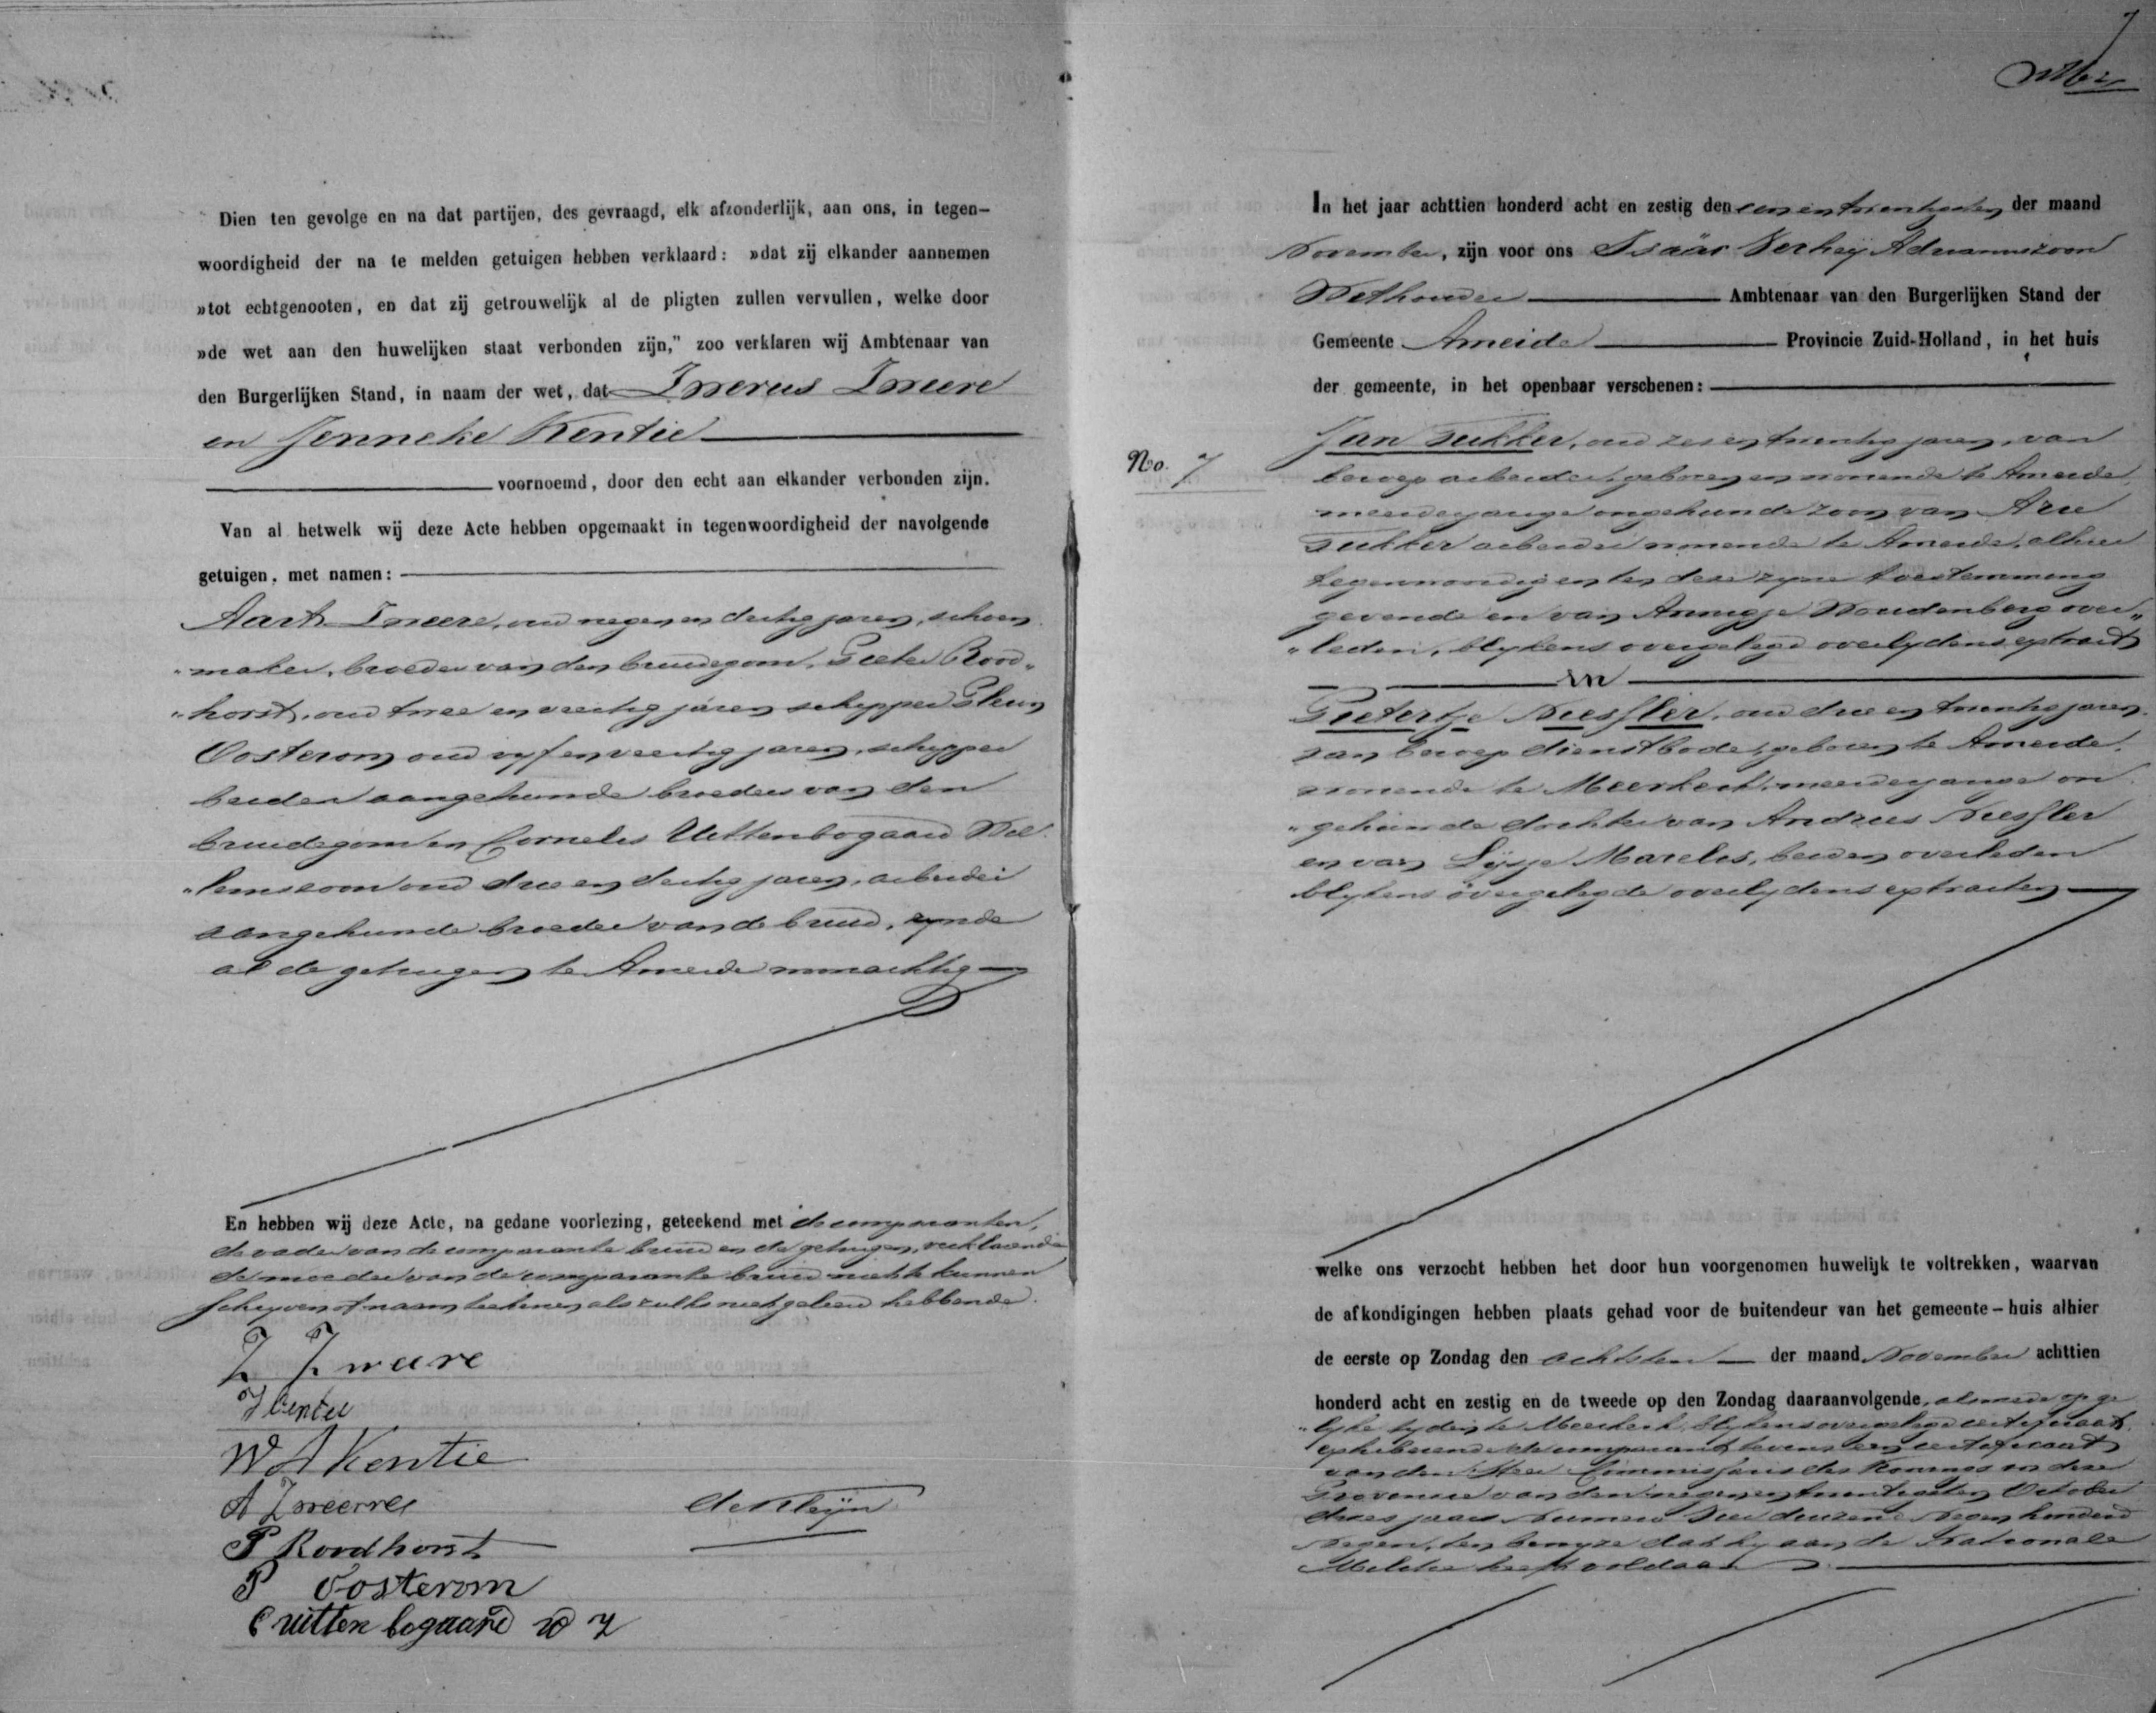 Dien ten gevolge en na dat partijen, des gevraagd, elk afzonderlijk, aan ons, in tegen-
woordigheid der na te melden getuigen hebben verklaard: »dat zij elkander aannemen
»tot echtgenooten, en dat zij getrouwelijk al de pligten zullen vervullen, welke door
»de wet aan den huwelijken staat verbonden zijn," zoo verklaren wij Ambtenaar van
den Burgerlijken Stand, in naam der wet, dat
en Jenneke Kentie
voornoemd, door den echt aan elkander verbonden zijn.
Van al hetwelk wij deze Acte hebben opgemaakt in tegenwoordigheid der navolgende
getuigen, met namen:
Aart Zweere, oud negen en dertig jaren, schoen
"maker, broeder van den bruidegom, Pieter Rood"
"horst, oud twee en veertig jaren schipper Pleun
Oosterom oud vyf en veertig jaren, schipper
beiden aangehuwde broeders van den
bruidegom en Cornelis Uittenbogaard Wil
"lemszoon oud drie en dertig jaren, arbeider
aangehuwde broeder van de bruid, zynde
al de getuigen te Ameide woonachtig
En hebben wij deze Acte, na gedane voorlezing, geteekend met de comparanten,
de vader van de comparante bruid en de getuigen, verklarende
de moeder van de comparante bruid niet te kunnen
schryven of naamteekenen als zulks niet geleerd hebbende.
Z Zweere
J Kentie
W A Kentie
A Zweere
de Kleijn
P Roodhorst
P Oosterom
C uittenbogaard W Z
7
No. 7
In het jaar achttien honderd acht en zestig den een en twintigsten der maand
November, zijn voor ons Isaäc Verheij Adrianuszoon
Wethouder Ambtenaar van den Burgerlijken Stand der
Gemeente Ameide Provincie Zuid-Holland, in het huis
der gemeente, in het openbaar verschenen:
Jan Tukker, oud zes en twintig jaren, van
beroep arbeider, geboren en wonende te Ameide,
meerderjarige ongehuwde zoon van Arie
Tukker arbeider wonende te Ameide, alhier
tegenwoordig en tot deze zyne toestemming
gevende en van Annigje Woudenberg over"
"leden, blykens overgelegd overlydens extract
en
Pietertje Niessler, oud drie en twintig jaren
van beroep dienstbode, geboren te Ameide,
wonende te Meerkerk, meerderjarige on
"gehuwde dochter van Andries Niessler
en van Lijsje Marelis, beiden overleden
blykens overgelegde overlydens extracten
welke ons verzocht hebben het door hun voorgenomen huwelijk te voltrekken, waarvan
de afkondigingen hebben plaats gehad voor de buitendeur van het gemeente-huis alhier
de eerste op Zondag den achtsten der maand November achttien
honderd acht en zestig en de tweede op den Zondag daaraanvolgende, alsmede op ge
"lyke tyden te Meerkerk, blykens overgelegd certificaat,
exhiberende de comparant tevens een certificaat
van den Heer Commissaris des Konings in deze
Provincie van den negen en twintigsten October
dezes jaars Nummer duizend Negen honderd
Negen, ten bewyze dat hy aan de Nationale
Militie heeft voldaan